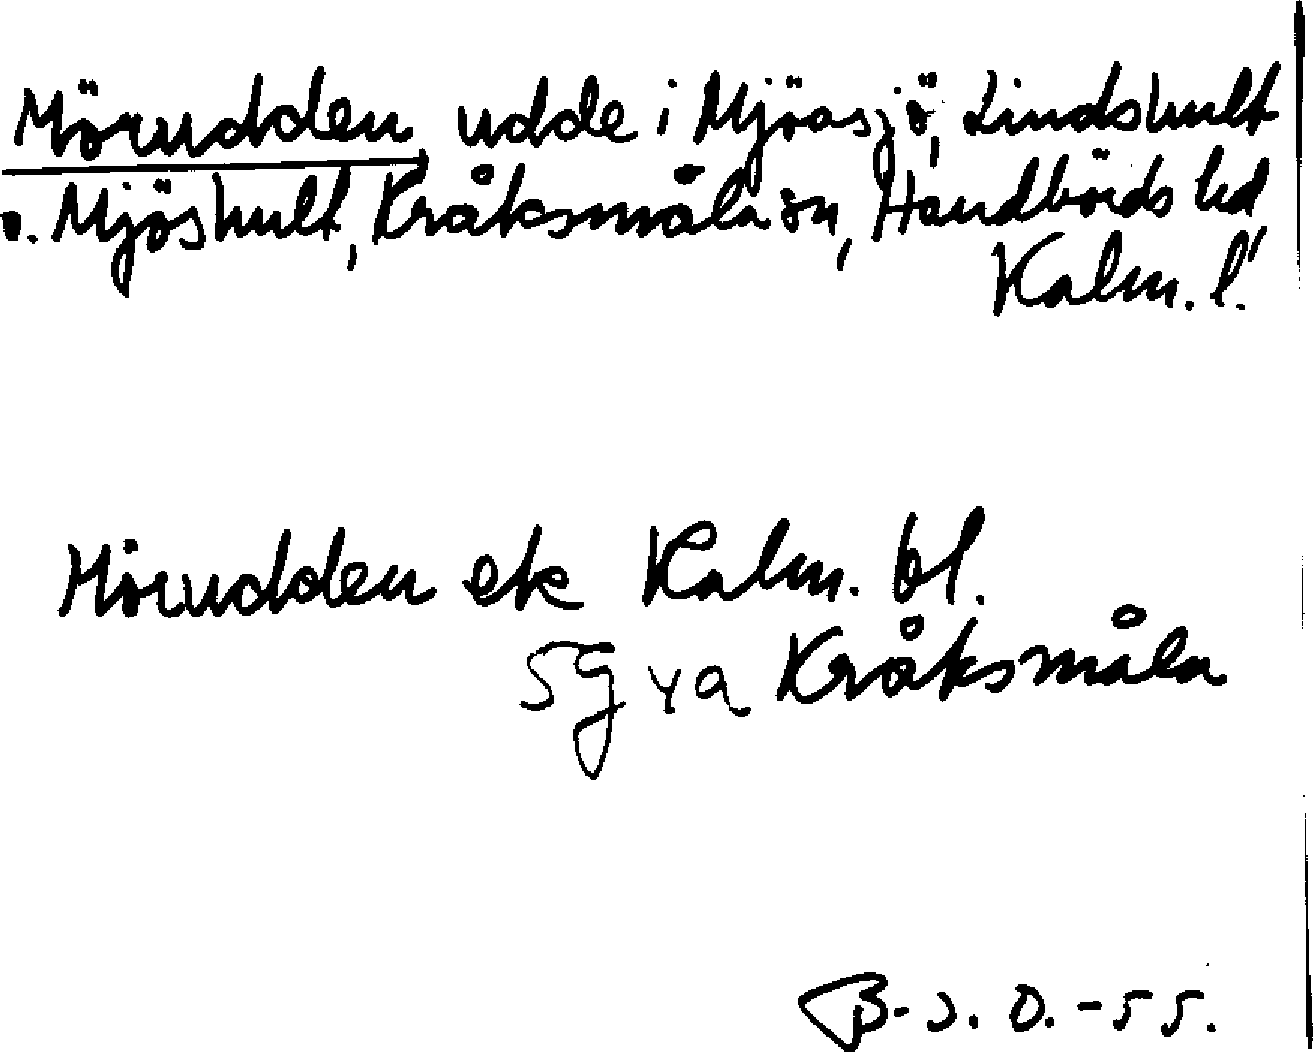 Mörudden, udde i Mjöasjö, Lindshult
o. Mjöshult, Kråksmåla sn, Handbörds hd
Kalm. l.
Mörudden ek Kalm. bl.
5g va Kråksmåla
B-J. O. -55.